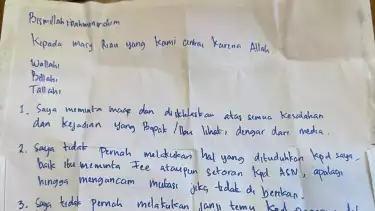 Bismillahirrahmanirrahim
Kepada masy Riau yang kami cintai karena Allah
Wallahi
Billahi
Tallahi
1. Saya meminta maaf dan diikhlaskan atas semua kesalahan
dan kejadian yang Bapak / Ibu lihat, dengar dari media.
2. Saya tidak Pernah melakukan hal yang dituduhkan kpd saya,
baik itu meminta Fee ataupun setoran kpd ASN, apalagi
hingga mengancam mutasi jika tidak di berikan.
3. Saya tidak pernah melakukan janji temu kpd